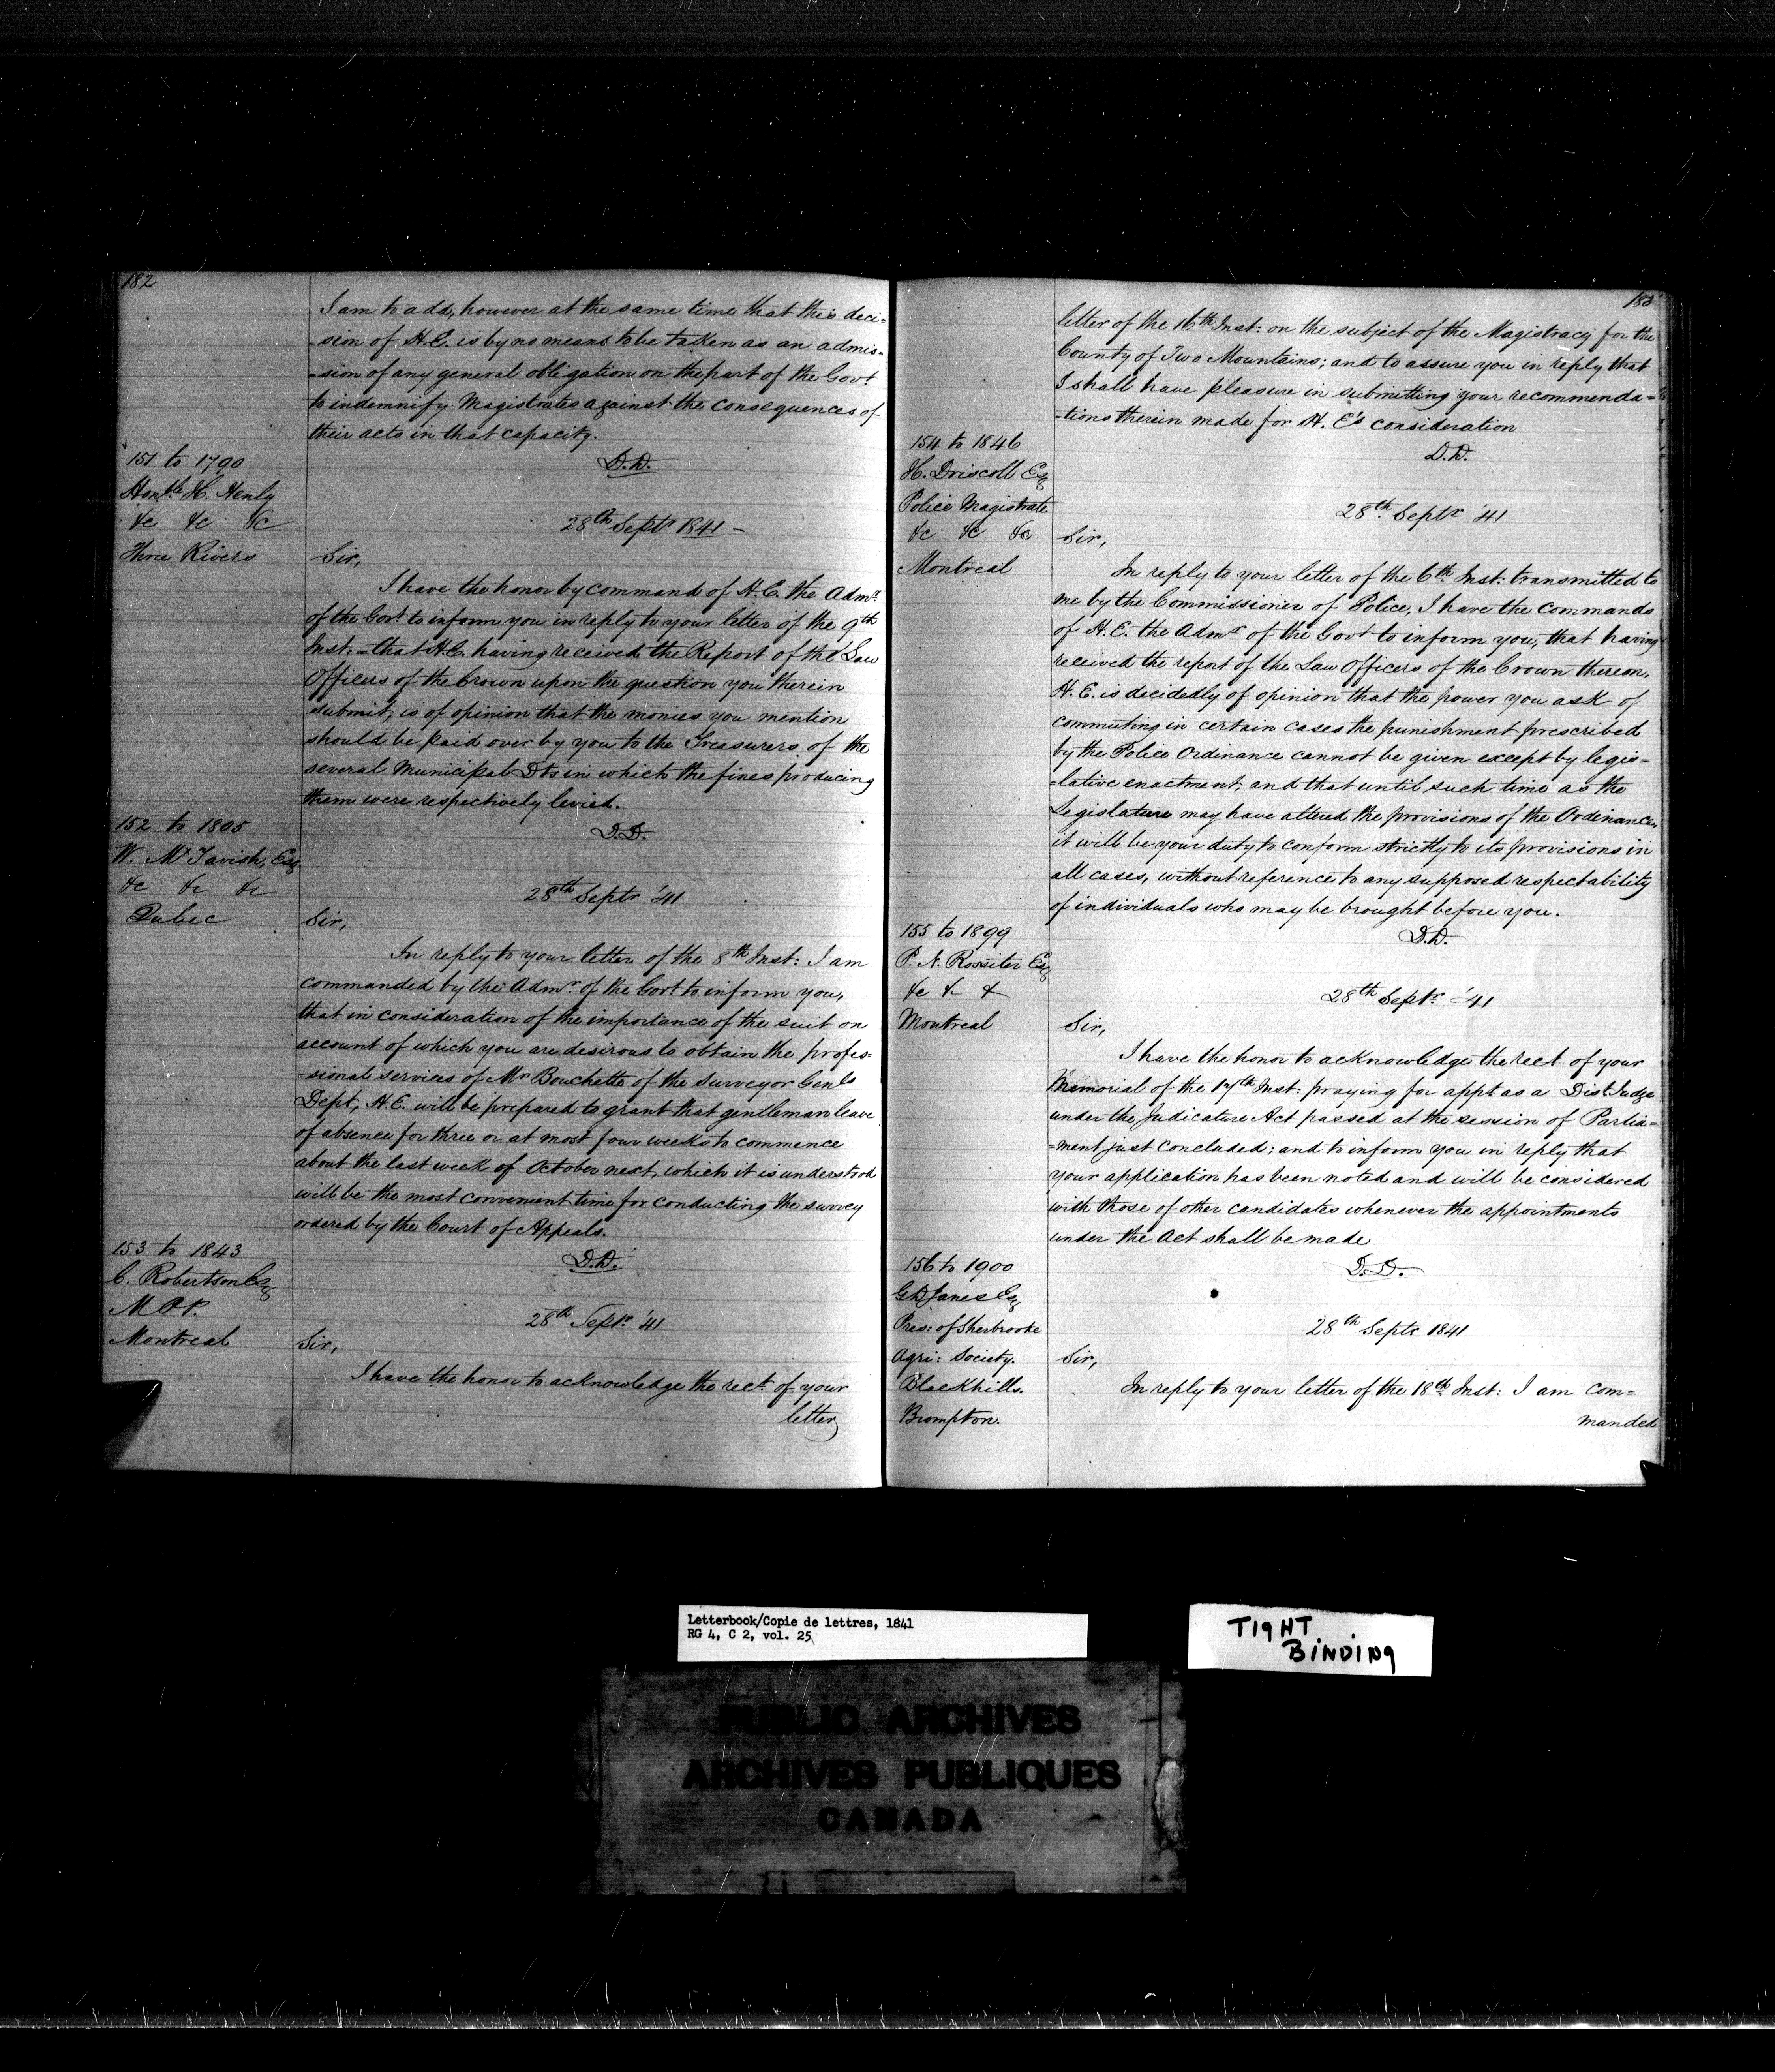 182
I am to add, however at the same time that this deci=
=sion of H.E. is by no means to be taken as an admis=
=sion of any general obligation on the part of the Govt
to indemnify Magistrates against the consequences of
their acts in that capacity.
D.D.
151 to 1790
Honble H. Henly
&c &c &c
Three Rivers
28th Septr 1841 -
Sir,
I have the honor by command of H.E. the Admr.
of the Govt to inform you in reply to your letter of the 9th
Inst: - that H.E. having received the Report of the Law
Officers of the Crown upon the question you therein
submit, is of opinion that the monies you mention
should be paid over by you to the Treasurers of the
several Municipal Dts in which the fines producing
them were respectively levied.
D.D.
152 to 1805
W. McTavish, Esq
&c &c &c
Quebec
28th Septr '41
Sir,
In reply to your letter of the 8th Inst: I am
commanded by the Admr. of the Govt to inform you,
that in consideration of the importance of the suit on
account of which you are desirous to obtain the profes=
=sional services of Mr Bouchette of the Surveyor Genls
Dept, H.E. will be prepared to grant that gentleman leave
of absence for three or at most four weeks to commence
about the last week of October next, which it is understood
will be the most convenient time for conducting the survey
ordered by the Court of Appeals.
D.D.
153 to 1843
C. Robertson Esq
M.P.P.
Montreal
28th Septr. '41
Sir,
I have the honor to acknowledge the rect. of your
letter
183
letter of the 16th Inst: on the subject of the Magistracy for the
County of Two Mountains; and to assure you in reply that
I shall have pleasure in submitting your recommenda=
=tions therein made for H. E's consideration
D.D.
154 to 1846
H. Driscoll Esq
Police Magistrate
&c &c &c
Montreal
28th. Septr '41
Sir,
In reply to your letter of the 6th Inst: transmitted to
me by the Commissioner of Police, I have the commands
of H.E. the Admr of the Govt to inform you, that having
received the report of the Law Officers of the Crown thereon,
H.E. is decidedly of opinion that the power you ask of
commuting in certain cases the punishment prescribed
by the Police Ordinance cannot be given except by legis=
=lative enactment, and that until such time as the
Legislature may have altered the provisions of the Ordinance,
it will be your duty to conform strictly to its provisions in
all cases, without reference to any supposed respectability
of individuals who may be brought before you.
D.D.
155 to 1899
P. N. Rossiter Esq
&c & &
Montreal
28th Septr. '41
Sir,
I have the honor to acknowledge the rect of your
Memorial of the 17th Inst: praying for appt as a Dist: Judge
under the Judicature Act passed at the session of Parlia=
=ment just concluded; and to inform you in reply that
your application has been noted and will be considered
with those of other candidates whenever the appointments
under the Act shall be made
D.D.
156 to 1900
Esq
Pres: of Sherbrooke
Agri: Society.
Blackhills.
Brompton.
28th Septr 1841
Sir,
In reply to your letter of the 18th Inst: I am com=
manded
Letterbook/Copie de lettres, 1841
RG 4, C 2, vol. 25
TIGHT
BINDING
PUBLIC ARCHIVES
ARCHIVES PUBLIQUES
CANADA